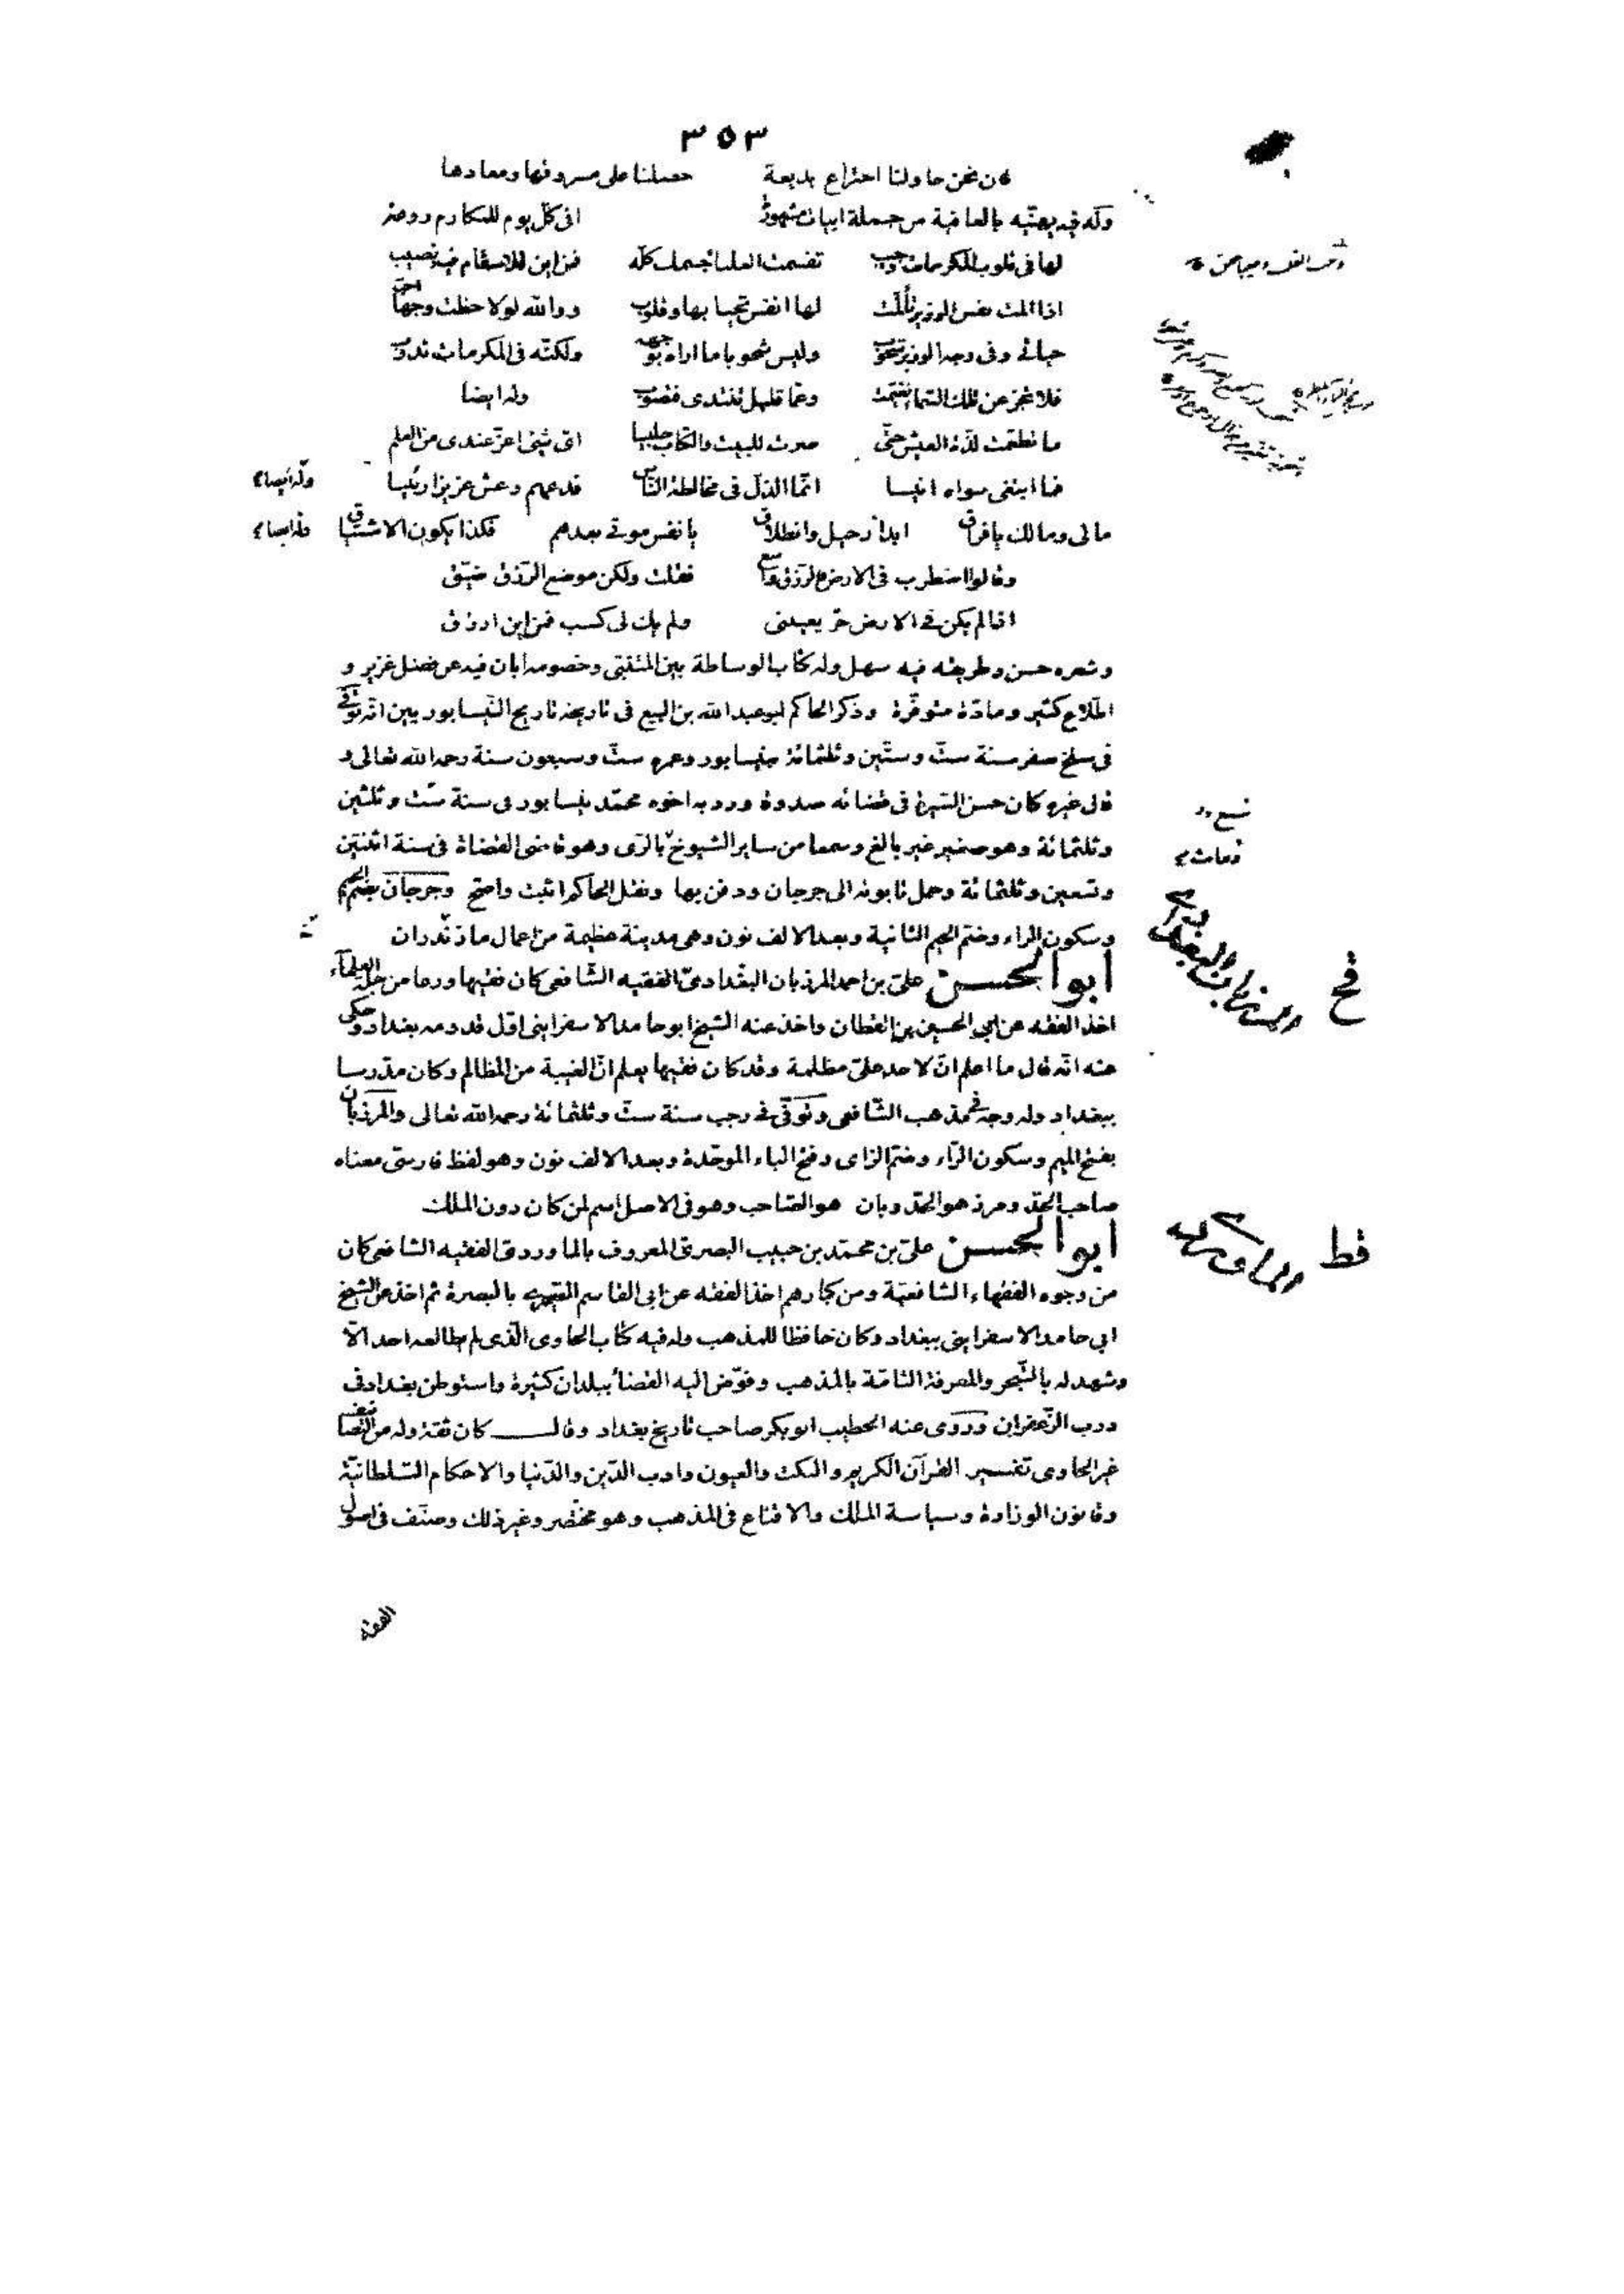 ٣٥٣
فان نحن حاولنا اختراع بديعة حصلنا على مسروقها ومعادها
وله فيه يهنيه بالعافية من جملة ابيات مشهورة افى كل يوم للمكارم روعة
لها فى قلوب المكرمات وجيب تقسمت العلياء جسمك كله فمن اين للاسقام فيه نصيب
اذا المت نفس الوزير تألمت لها انفس تحيا بها وقلوب ووالله لولا حظت وجها احب
حياتى وفى وجه الوزير شحوب وليس شحوبا ما اراه بوجهه ولكنه فى المكرمات ندوب
فلا تجزعن تلك السماء تغيمت وعما قليل تبتدى فتصوب وله ايضا
ما تطعمت لذة العيش حتى صرت للبيت والكتاب جليسا اى شيئ اعز عندى من العلم
فما ابتغى سواه انيسا انما الذل فى مخالطة الناس فدعهم وعش عزيزا رئيسا وله ايضا
مالى ومالك يا فراق ابدا رحيل وانطلاق يا نفس موتى بعدهم فكذا يكون الاشتياق وله ايضا
وقالوا اضطرب فى الارض فالرزق واسع فقلت ولكن موضع الرزق ضيق
اذا لم يكن فى الارض حر يعيننى ولم يك لى كسب فمن اين ارزق
وشعره حسن وطريقته فيه سهل وله كتاب الوساطة بين المتنبى وخصومه ابان فيه عن فضل غزير و
اطلاع كثير ومادة متوفرة وذكر الحاكم ابو عبد الله بن البيع فى تاريخه تاريخ النيسابوريين انه توفى
فى سلخ صفر سنة ست وستين وثلثمائة بنيسابور وعمره ست وسبعون سنة رحمه الله تعالى و
قال غيره كان حسن السيرة فى قضائه صدوقا ورد به اخوه محمد نيسابور فى سنة ست وثلثين
وثلثمائة وهو صغير غير بالغ وسمعا من ساير الشيوخ بالرى وهو قاضى القضاة فى سنة اثنتين
وتسعين وثلثمائة وحمل تابوته الى جرجان ودفن بها ونقل الحاكم اثبت واصح وجرجان بضم الجيم
وسكون الراء وضم الجيم الثانية وبعد الالف نون وهى مدينة عظيمة من اعمال مازندران
ابو الحسن على بن احمد المرزبان البغدادى الفقيه الشافعى كان فقيها ورعا من جلة العلماء
اخذ الفقه عن ابى الحسين بن القطان واخذ عنه الشيخ ابو حامد الاسفراينى اول قدومه بغداد وحكى
عنه انه قال ما اعلم ان لاحد على مظلمة وقد كان فقيها يعلم ان الغيبة من المظالم وكان مدرسا
ببغداد وله وجه فى مذهب الشافعى وتوفى فى رجب سنة ست وثلثمائة رحمه الله تعالى والمرزبان
بفتح الميم وسكون الراء وضم الزاى وفتح الباء الموحدة وبعد الالف نون وهو لفظ فارسى معناه
صاحب الحد ومرز هو الحد وبان هو الصاحب وهو فى الاصل اسم لمن كان دون الملك
ابو الحسن على بن محمد بن حبيب البصرى المعروف بالماوردى الفقيه الشافعى كان
من وجوه الفقهاء الشافعية ومن كبارهم اخذ الفقه عن ابى القاسم بالبصرة ثم اخذ عن الشيخ
ابى حامد الاسفراينى ببغداد وكان حافظا للمذهب وله فيه كتاب الحاوى الذى لم يطالعه احد الا
وشهد له بالتبحر والمعرفة التامة بالمذهب وفوض اليه القضاء ببلدان كثيرة واستوطن بغداد فى
درب الزعفران وروى عنه الخطيب ابو بكر صاحب تاريخ بغداد وقال كان ثقة وله من التصانيف
غير الحاوى تفسير القرآن الكريم والنكت والعيون وادب الدين والدنيا والاحكام السلطانية
وقانون الوزارة وسياسة الملك والاقناع فى المذهب وهو مختصر وغير ذلك وصنف فى اصول
الفقه